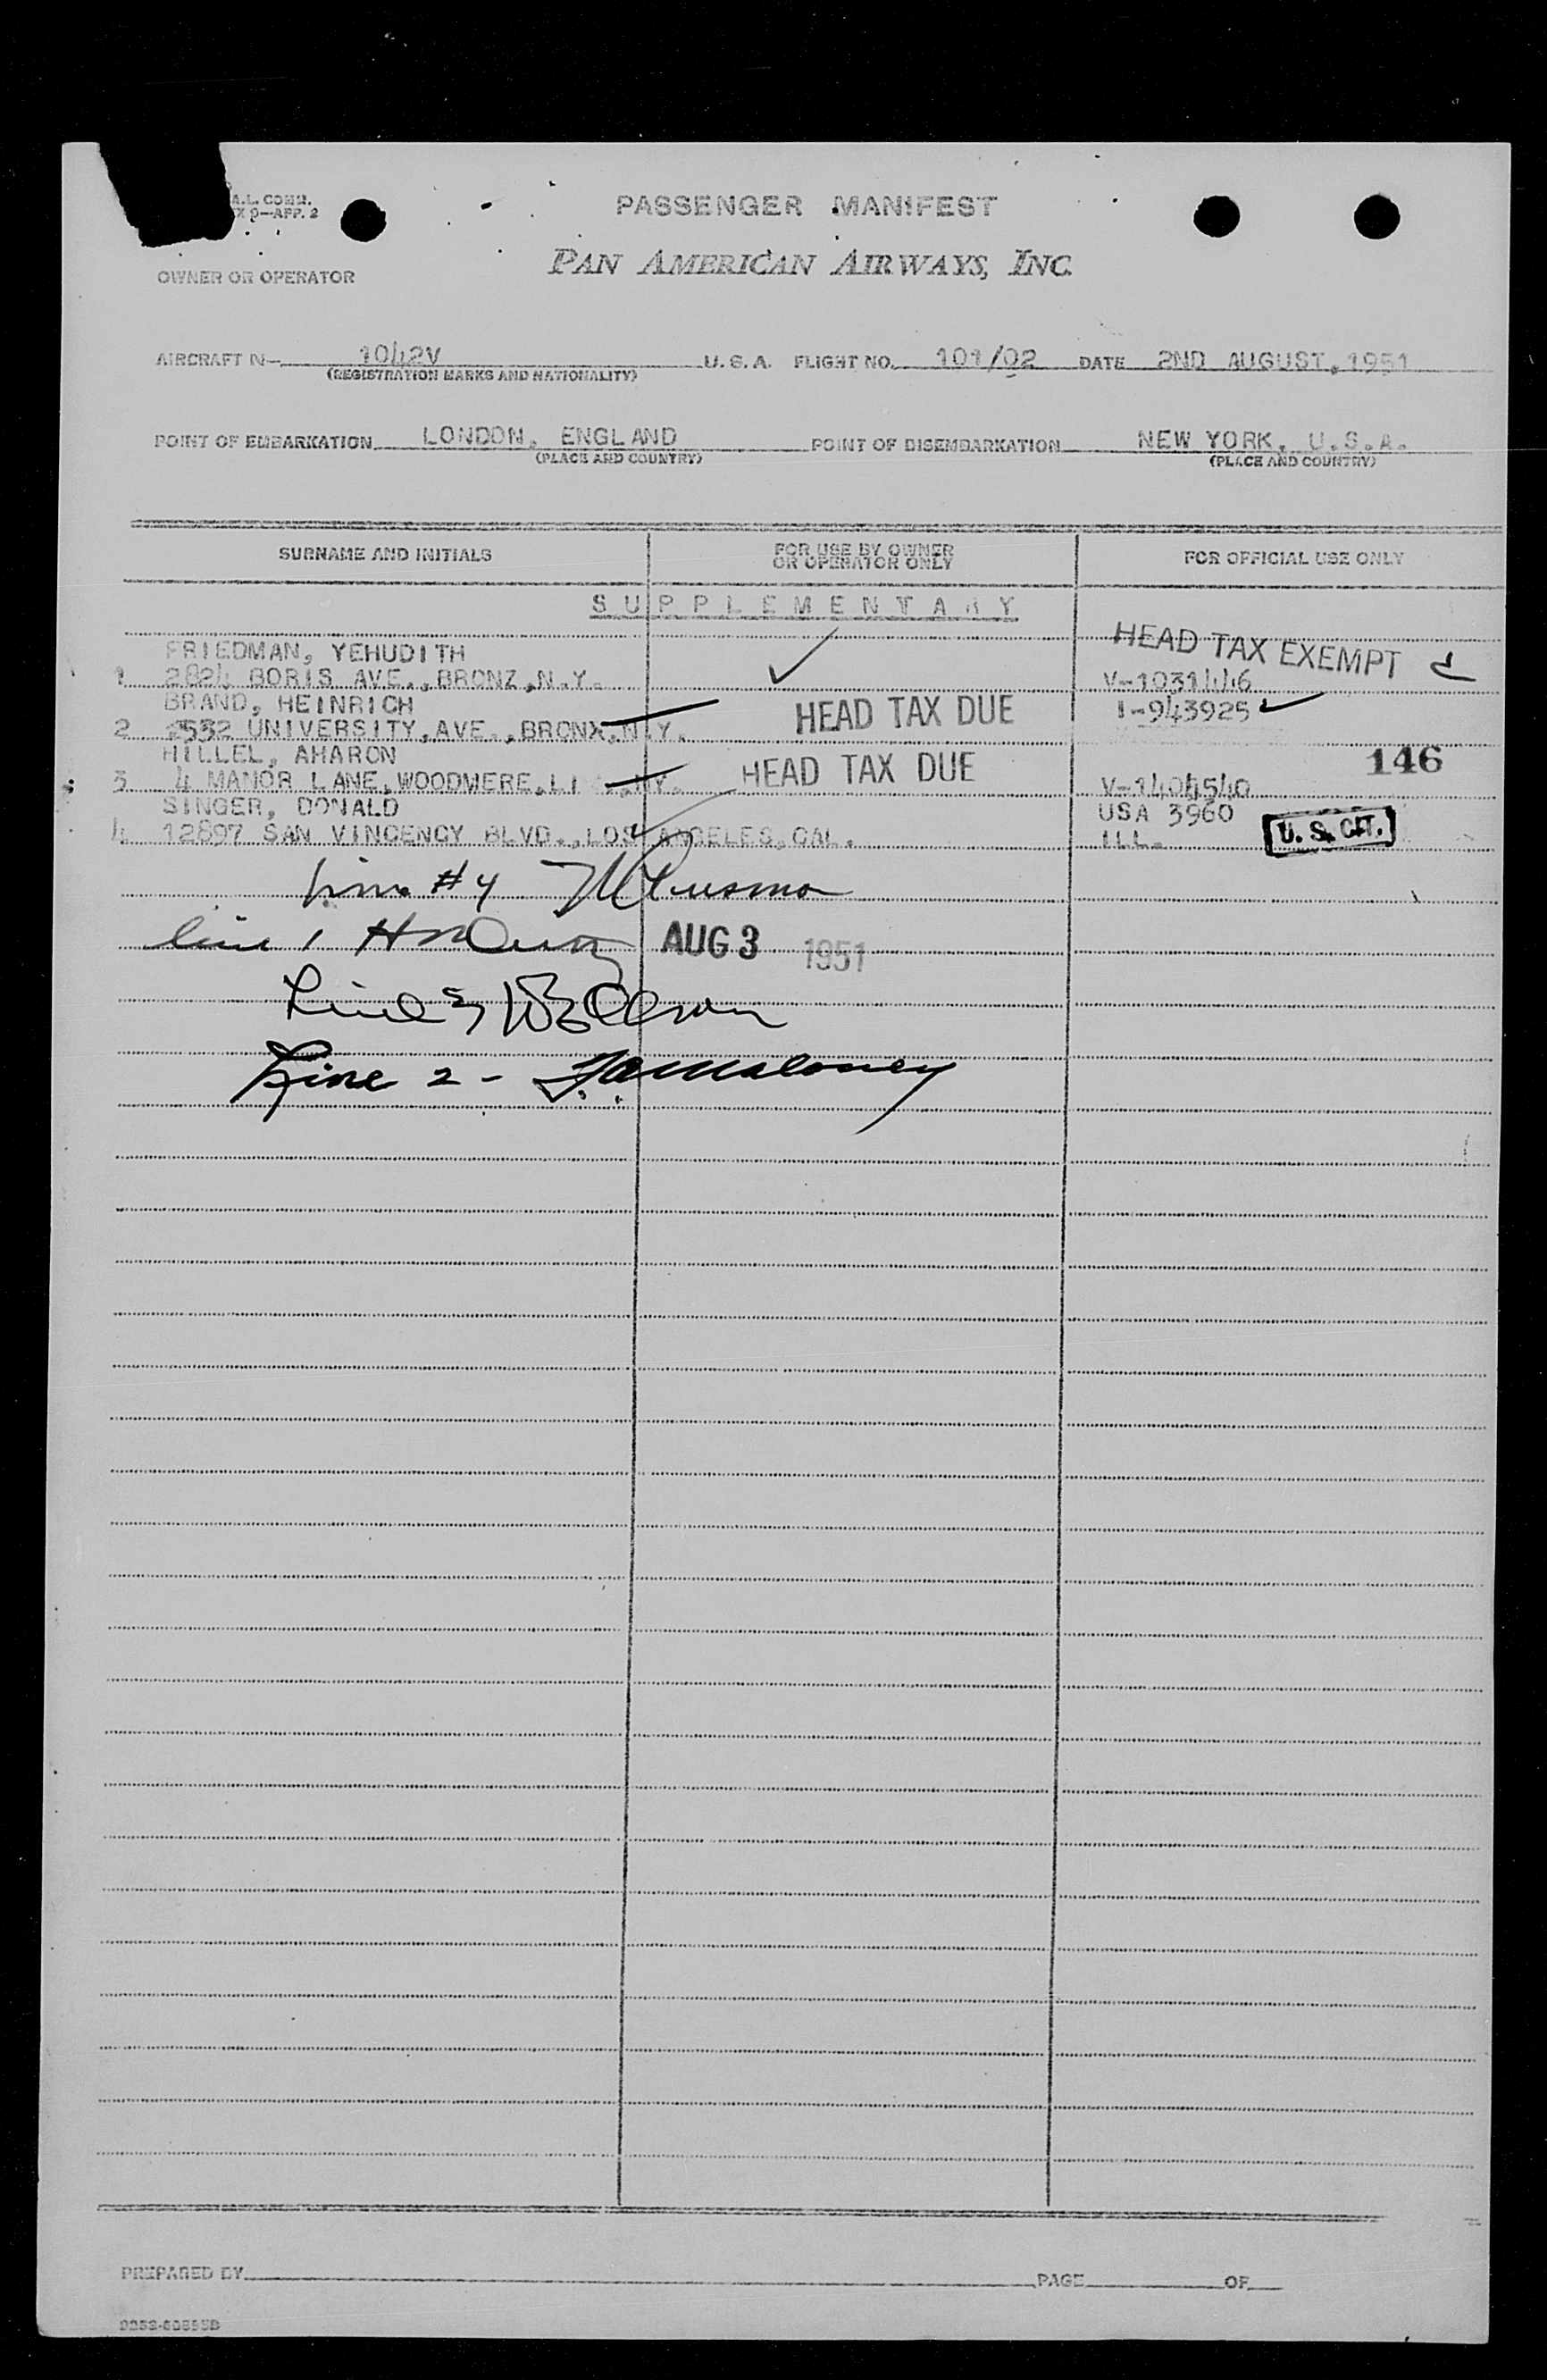 A.L. COMM.
X 9—APP. 2
PASSENGER MANIFEST
PAN AMERICAN AIRWAYS, INC.
OWNER OR OPERATOR
AIRCRAFT N— 1042V U. S. A. FLIGHT NO. 101/02 DATE 2ND AUGUST, 1951
(REGISTRATION MARKS AND NATIONALITY)
POINT OF EMBARKATION LONDON, ENGLAND POINT OF DISEMBARKATION NEW YORK, U.S.A.
(PLACE AND COUNTRY) (PLACE AND COUNTRY)
SURNAME AND INITIALS FOR USE BY OWNER OR OPERATOR ONLY FOR OFFICIAL USE ONLY
SUPPLEMENTARY
FRIEDMAN, YEHUDITH HEAD TAX EXEMPT
1 2824 BORIS AVE.,BRONZ,N.Y. V-1031446
BRAND, HEINRICH HEAD TAX DUE I-943925
2 2532 UNIVERSITY,AVE.,BRONX,N.Y.
HILLEL, AHARON HEAD TAX DUE 146
3 4 MANOR LANE,WOODMERE,LI NY. V-1404540
SINGER, DONALD USA 3960
4 12897 SAN VINCENCY BLVD.,LOS ANGELES,CAL. ILL. U. S. CIT.
#4
line 1
AUG 3 1951
Line 3
Line 2 - Maloney
PREPARED BY PAGE OF